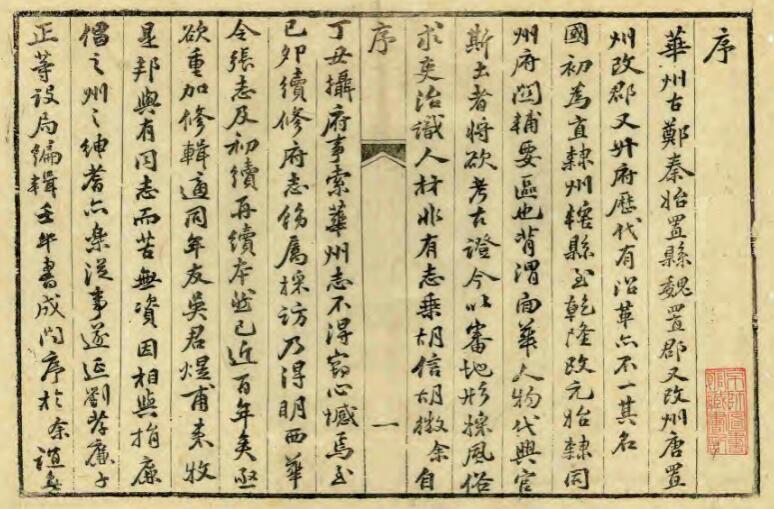 序
華州古鄭秦始置縣魏置郡又改州唐置
州改郡又升府歷代有沿革亦不一其名
國初為直隸州轄縣至乾隆改元始隸同
州府關輔要區也背渭面華人物代興官
斯土者將欲考古證今以審地形採風俗
求吏治識人材非有志乘胡信胡徵余自
序
一
丁丑攝府事索華州志不得竊心憾焉至
己卯續修府志飭屬採訪乃得明西華
令張志及初續再續本然已近百年矣亟
欲重加修輯適同年友吳君煜甫來牧
是邦與有同志而苦無資因相與捐廉
倡之州之紳耆亦樂從事遂延劉孝廉子
正等設局編輯壬午書成問序於余誼